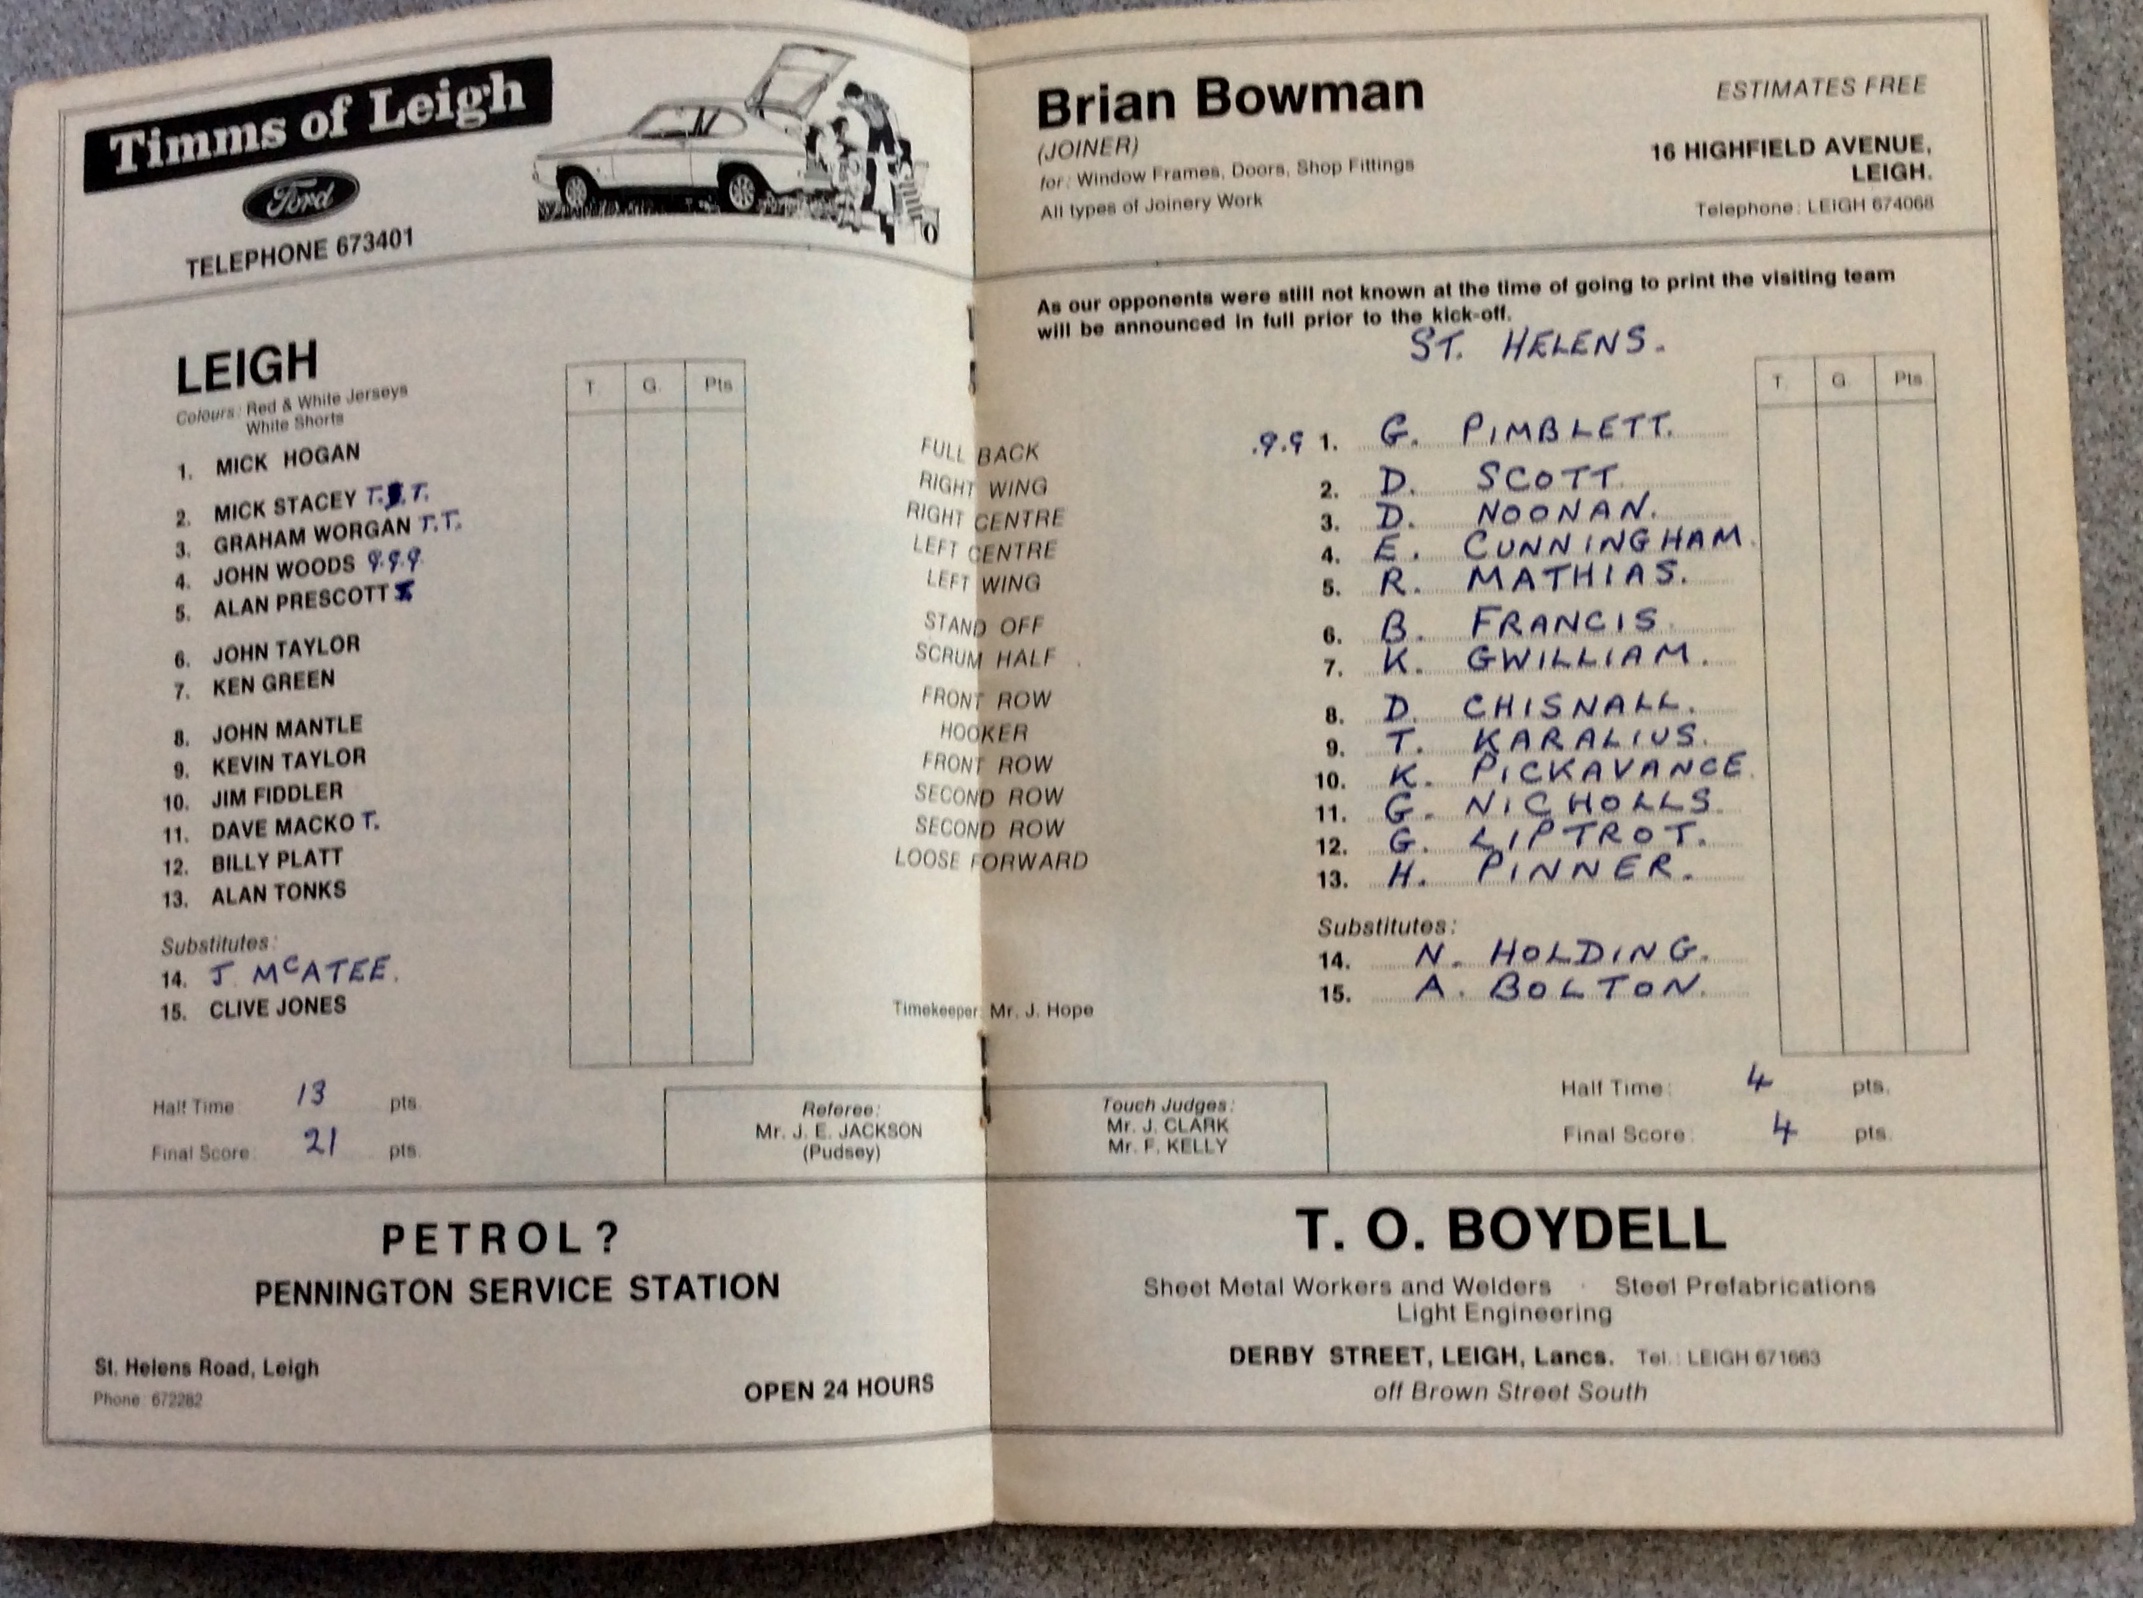 Timms of Leigh
Ford
TELEPHONE 673401
LEIGH
Colours: Red & White Jerseys
White Shorts
T. G. Pts
1. MICK HOGAN
2. MICK STACEY T. T.
3. GRAHAM WORGAN T.T.
4. JOHN WOODS g.g.g
5. ALAN PRESCOTT
6. JOHN TAYLOR
7. KEN GREEN
8. JOHN MANTLE
9. KEVIN TAYLOR
10. JIM FIDDLER
11. DAVE MACKO T.
12. BILLY PLATT
13. ALAN TONKS
Substitutes:
14. J. McATEE.
15. CLIVE JONES
Half Time: 13 pts.
Final Score: 21 pts.
FULL BACK
RIGHT WING
RIGHT CENTRE
LEFT CENTRE
LEFT WING
STAND OFF
SCRUM HALF
FRONT ROW
HOOKER
FRONT ROW
SECOND ROW
SECOND ROW
LOOSE FORWARD
Timekeeper: Mr. J. Hope
Referee:
Mr. J. E. JACKSON
(Pudsey)
Touch Judges:
Mr. J. CLARK
Mr. F. KELLY
PETROL?
PENNINGTON SERVICE STATION
St. Helens Road, Leigh
Phone: 672282
OPEN 24 HOURS
Brian Bowman
(JOINER)
for: Window Frames, Doors, Shop Fittings
All types of Joinery Work
ESTIMATES FREE
16 HIGHFIELD AVENUE,
LEIGH.
Telephone: LEIGH 674068
As our opponents were still not known at the time of going to print the visiting team
will be announced in full prior to the kick-off.
ST. HELENS.
T. G. Pts
.g.g 1. G. PIMBLETT.
2. D. SCOTT.
3. D. NOONAN.
4. E. CUNNINGHAM.
5. R. MATHIAS.
6. B. FRANCIS.
7. K. GWILLIAM.
8. D. CHISNALL.
9. T. KARALIUS.
10. K. PICKAVANCE.
11. G. NICHOLLS.
12. G. LIPTROT.
13. H. PINNER.
Substitutes:
14. N. HOLDING.
15. A. BOLTON.
Half Time: 4 pts.
Final Score: 4 pts.
T. O. BOYDELL
Sheet Metal Workers and Welders · Steel Prefabrications
Light Engineering
DERBY STREET, LEIGH, Lancs. Tel.: LEIGH 671663
off Brown Street South